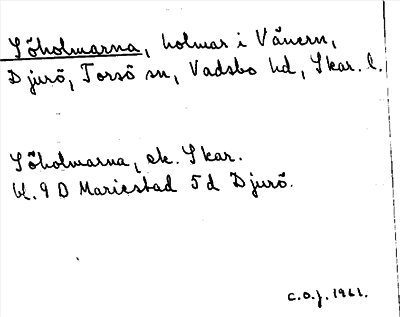 Söholmarna, holmar i Vänern,
Djurö, Torsö sn, Vadsbo hd, Skar. l.
Söholmarna, ek. Skar.
bl. 9 D Mariestad 5 d Djurö.
C.O.J. 1961.